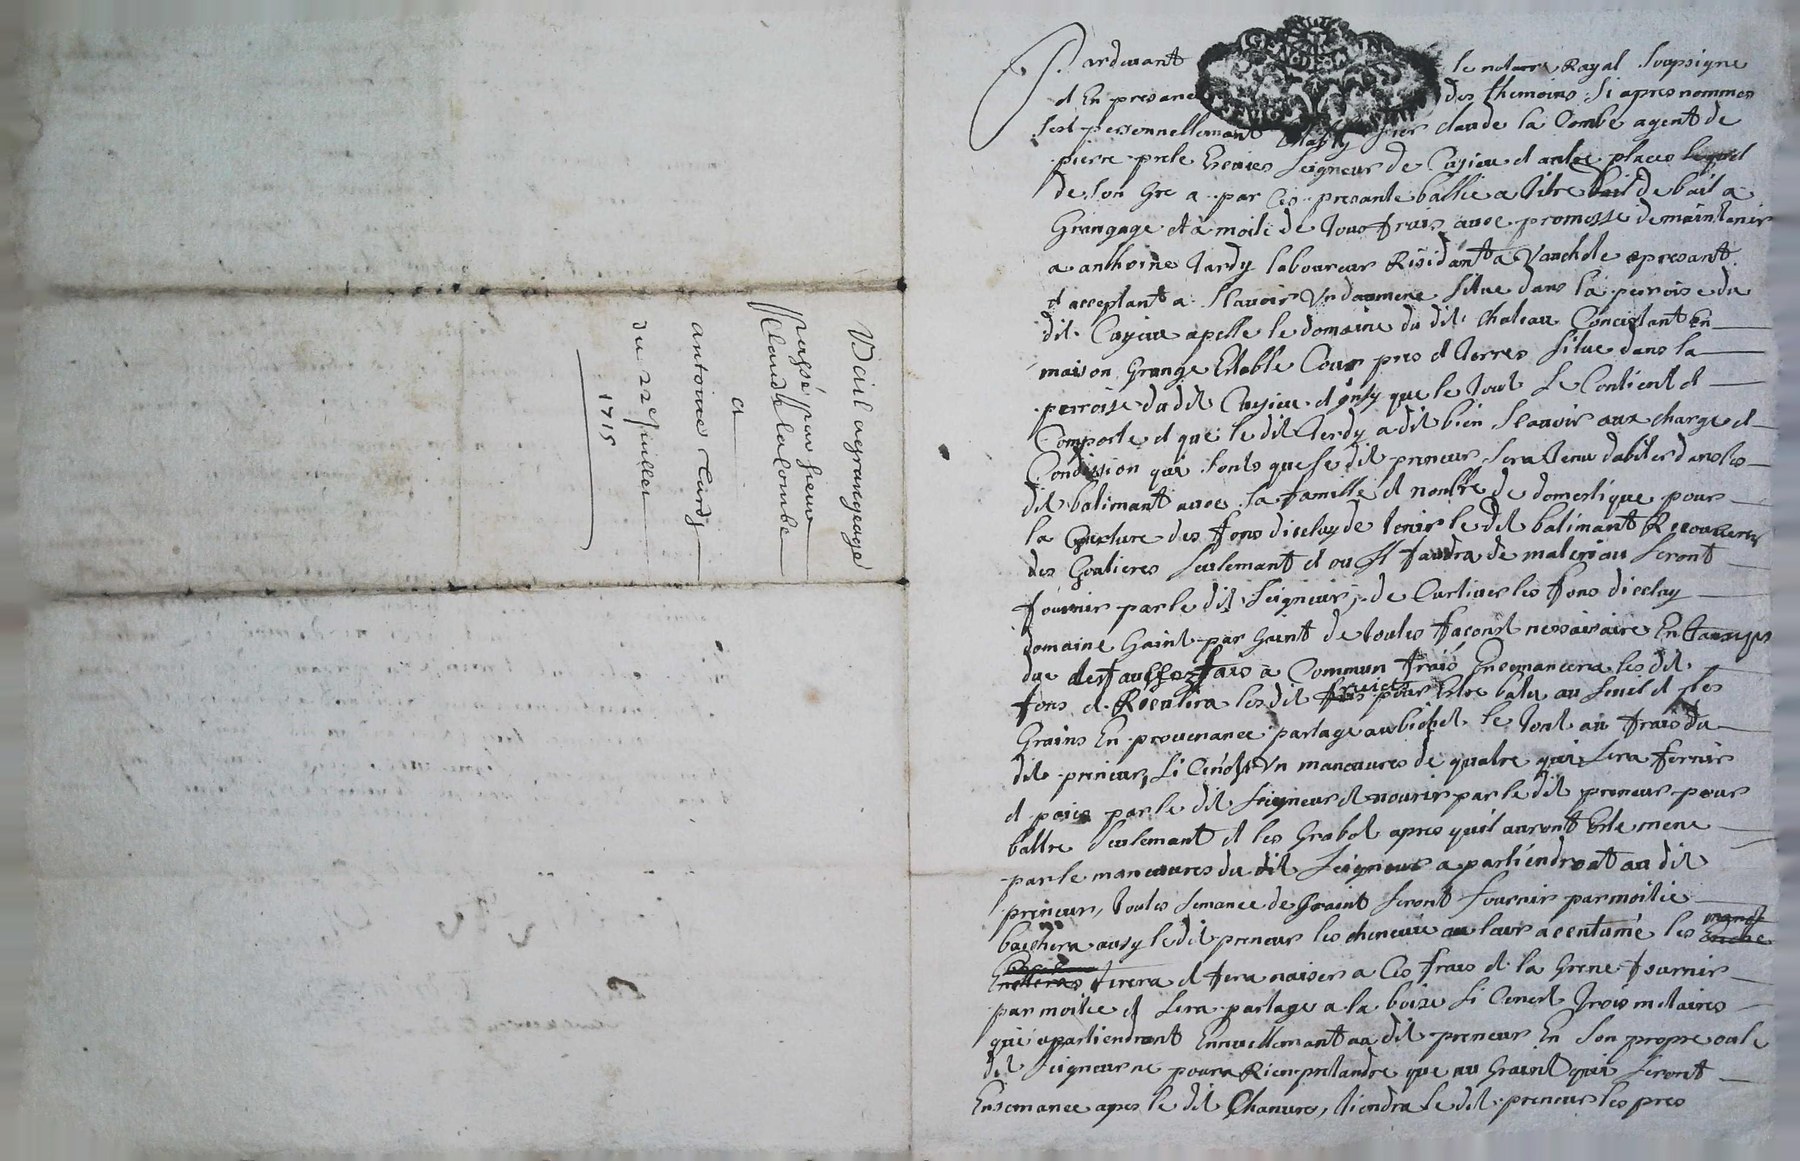 Bail agrangeage
passé par sieur
Claude lacombe
a
antoine Tardy
du 22 Juillet
1715
Pardevant le notaire Royal soupsigne
et En presance des themoins si apres nommes
sest personnellemant Etably sier claude la Combe agent de
pierre prele Escuier seigneur de Cusieu et autre places lequel
de son Gre a par Ces presante ballie a titre de bail a
Grangage et a moitie de tous fruis avec promesse de maintenir
a anthoine tardy laboureur Residant a present
et acceptant a scavoir Un daumene situe dans la peroise du
dit Cusieu apelle le domaine du dit chateau Concistant En
maison Grange Estable Cour pres et terres situe dans la
perroise dudit Cusieu et insy que le tout se Contient et
Comporte et que le dit terdy a dit bien scavoir aux charge et
Condission qui sonts que le dit preneur sera tenu dabiter dans les
dit batimant avec sa famille et nonbre de domestique pour
la Culture des fons diceluy de tenir le dit batimant Recouverts
des Goutieres seulemant et ou il faudra de materiau seront
fournir par le dit seigneur, de Curtiver les fons dicelay
domaine Gaint par Gaint de toutes façons nessaisaire En tamps
due a Commun frais Ensemancera les dit
fons et Receulira les dit fruict pour Estre batu au sueil et les
Grains En provenance partage au bichet le tout au frais du
dit preneur, si Cenest Un maneuvres de quatre qui sera fornir
et paies par le dit seigneur et nourir par le dit preneur pour
battre seulemant et les Grabot apres quil auront Este mene
par le maneuvres du dit seigneur apartiendront au dit
preneur, toutes semance de Graint seront fournir par moitie
baschera ausy le dit preneur les chenevie au leurs acentumé les
tirera et fera naiser a Ces frais et la Grene fournir
par moitiee et sera partage a la boize si Cenest trois metaires
qui apartiendront Ennuellemant au dit preneur En son propre ou le
dit seigneur ne poura Rien pretandre que au Graint qui seront
Ensemance apres le dit Chanvre, tiendra le dit preneur les pres